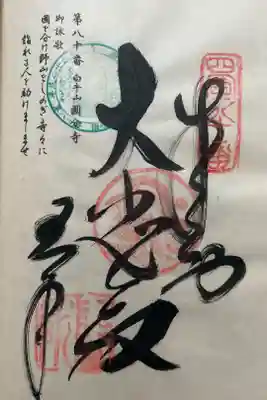 四國八十番
奉納
大悲殿
第八十番 白牛山國分寺
御詠歌
國を分け野山をしのぎ寺々に
詣れる人を助けましませ